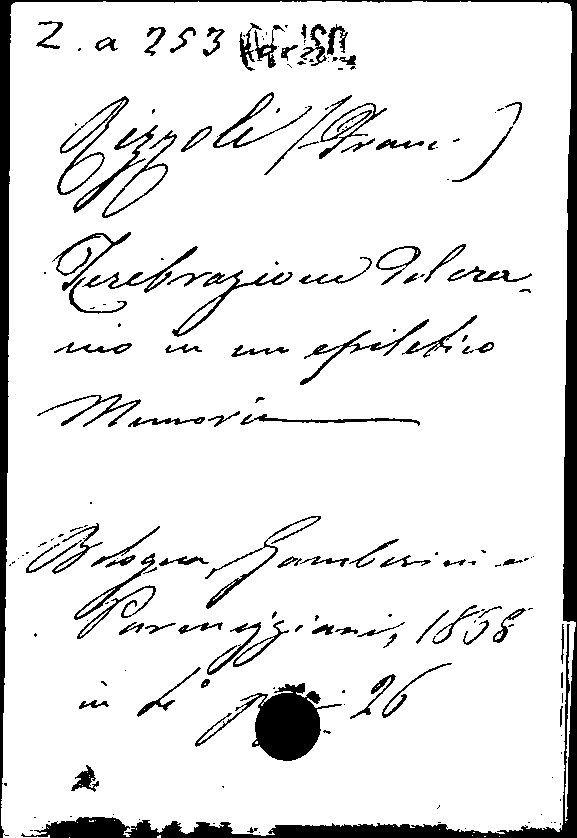 Z. a 253
Rizzoli (Franc.)
Terebrazione del cra-
nio in un epiletico
Memoria
Bologna, Gamberini e
Parmeggiani, 1858
in 4° 26